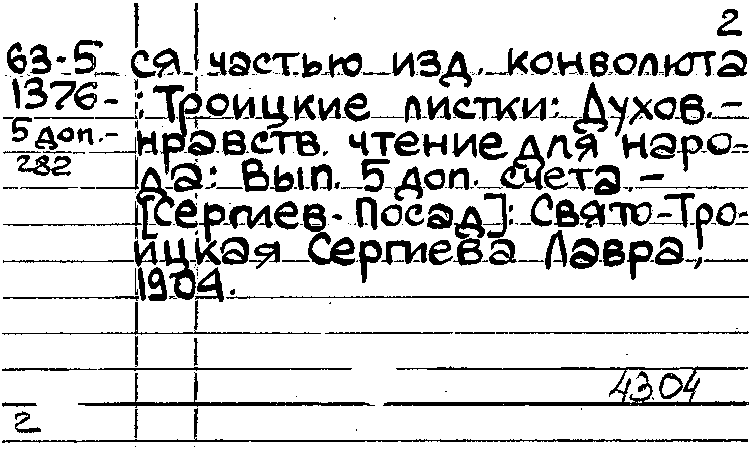 2
63-5 ся частью изд. конволюта
1376- : Троицкие листки: Духов.-
5 доп.- нравств. чтение для наро-
282 да: Вып. 5 доп. счета. –
[Сергиев-Посад]: Свято-Тро-
ицкая Сергиева Лавра,
1904.
4304
2